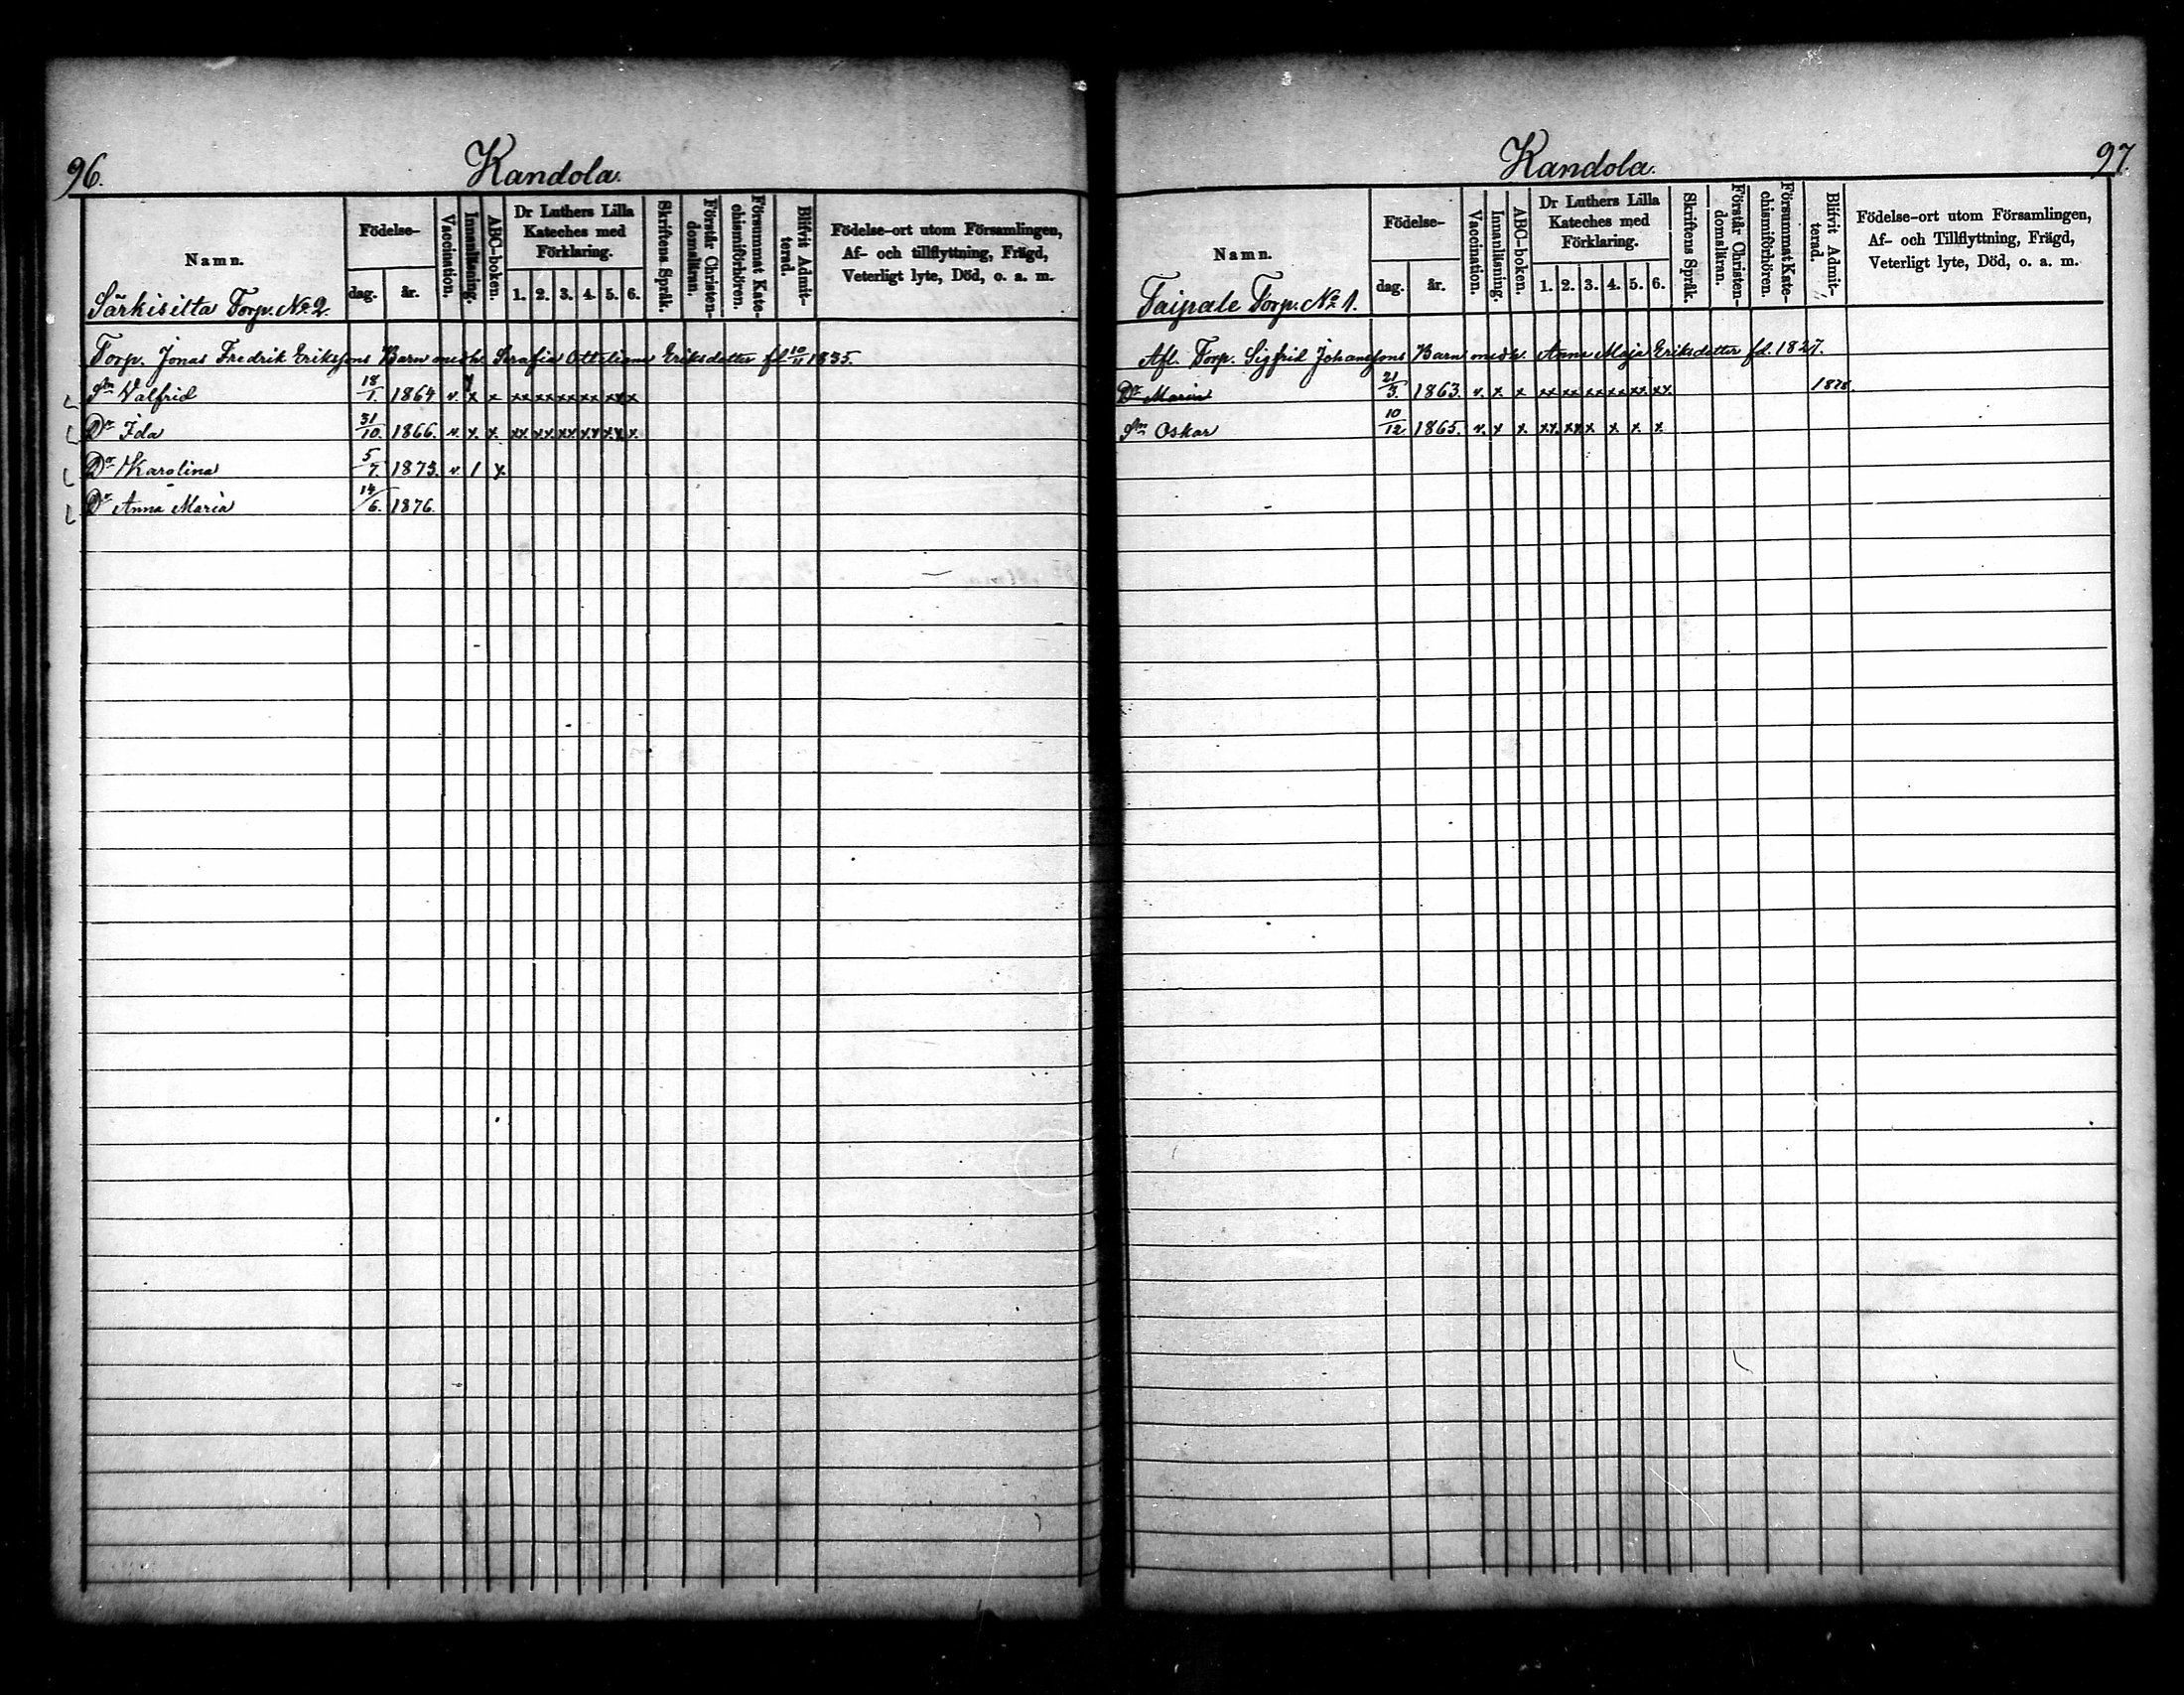 96.
Kandola.
Namn.
Särkisilta Torp. No 2.
Födelse-
dag.
år.
Vaccination.
Innanläsning.
ABC-boken.
Dr Luthers Lilla
Kateches med
Förklaring.
1. 2. 3. 4. 5. 6.
Skriftens Språk.
Förstår Christen-
domsläran.
Försummat Kate-
chismiförhören.
Blifvit Admit-
terad.
Födelse-ort utom Församlingen,
Af- och tillflyttning, Frägd,
Veterligt lyte, Död, o. a. m.
Torp. Jonas Fredrik Erikssons Barn med h. Serafia Ottiliana Eriksdotter fd 10/11 1835.
Sn Valfrid 18/1. 1864 v. x x xx xx xx xx xx x
Dr Ida 31/10. 1866. v. x. x. xx. xx xx xx xx x.
Dr Karolina 5/7. 1873. v. 1 x.
Dr Anna Maria 14/6. 1876.
97.
Kandola.
Namn.
Taipale Torp. No 1.
Födelse-
dag.
år.
Vaccination.
Innanläsning.
ABC-boken.
Dr Luthers Lilla
Kateches med
Förklaring.
1. 2. 3. 4. 5. 6.
Skriftens Språk.
Förstår Christen-
domsläran.
Försummat Kate-
chismiförhören.
Blifvit Admit-
terad.
Födelse-ort utom Församlingen,
Af- och Tillflyttning, Frägd,
Veterligt lyte, Död, o. a. m.
Afl. Torp. Sigfrid Johanssons Barn med h. Anna Maja Eriksdotter fd. 1827.
Dr Maria 21/3. 1863. v. x. x xx xx xx xx xx. xx. 1878.
Sn Oskar 10/12 1865. v. x x. xx. xx x x x. x.